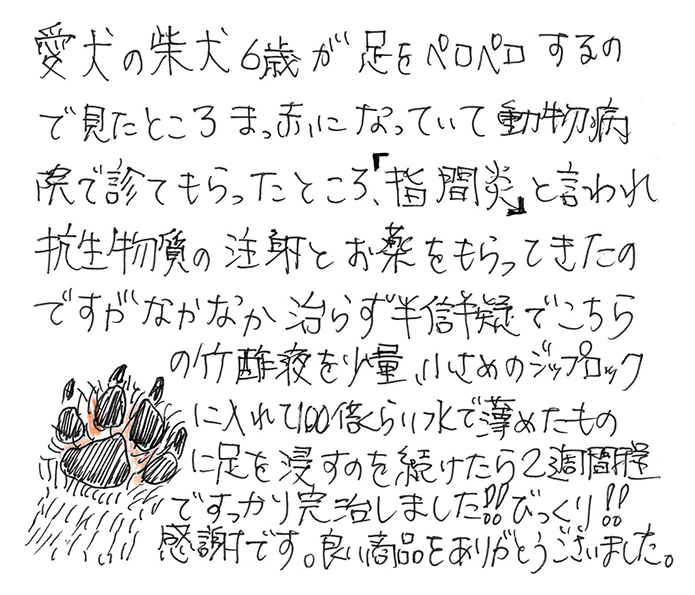 愛犬の柴犬6歳が足をペロペロするの
で見たところまっ赤になっていて動物病
院で診てもらったところ、「指間炎」と言われ
抗生物質の注射とお薬をもらってきたの
ですがなかなか治らず半信半疑でこちら
の竹酢液を少量、小さめのジップロック
に入れて100倍くらい水で薄めたもの
に足を浸すのを続けたら2週間程
ですっかり完治しました!!びっくり!!
感謝です。良い商品をありがとうございました。